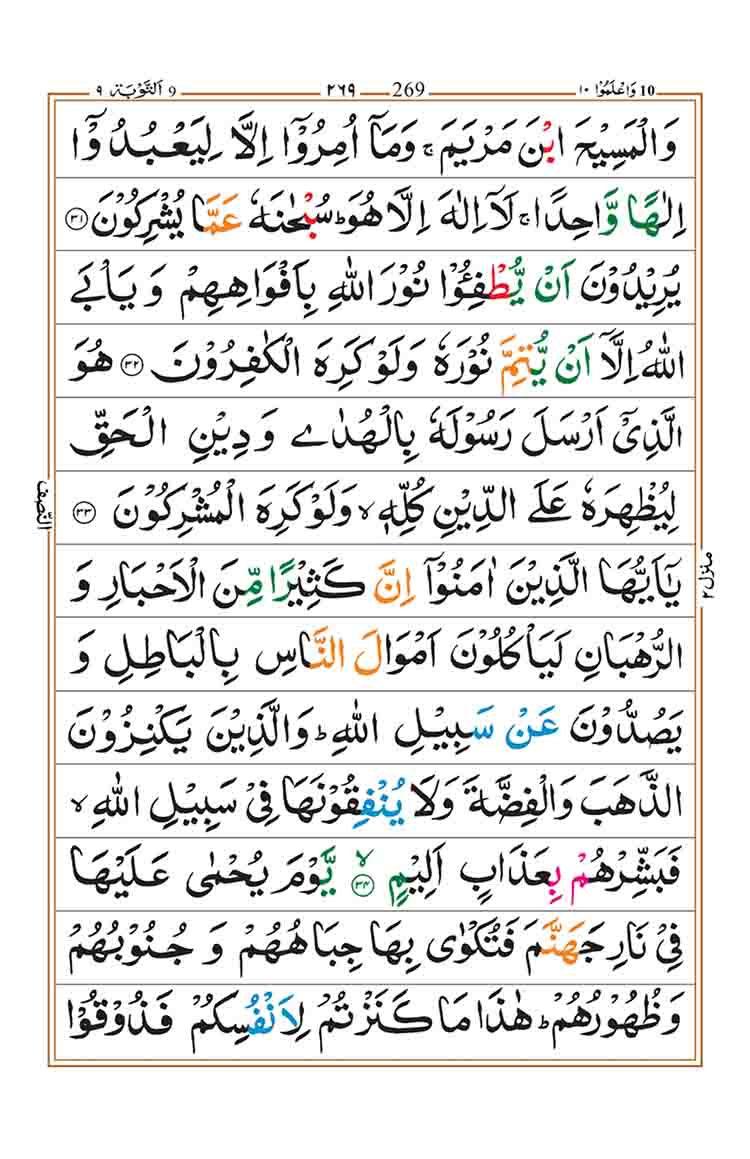 10 وَاعْلَمُوْٓا ۱۰ 269 ۲۶۹ 9 اَلتَّوْبَة ۹
وَالْمَسِيْحَ ابْنَ مَرْيَمَ ۚ وَمَآ اُمِرُوْٓا اِلَّا لِيَعْبُدُوْٓا
اِلٰهًا وَّاحِدًا ۚ لَآ اِلٰهَ اِلَّا هُوَ ؕ سُبْحٰنَهٗ عَمَّا يُشْرِكُوْنَ ﴿۳۱﴾
يُرِيْدُوْنَ اَنْ يُّطْفِئُوْا نُوْرَ اللّٰهِ بِاَفْوَاهِهِمْ وَيَاْبَى
اللّٰهُ اِلَّآ اَنْ يُّتِمَّ نُوْرَهٗ وَلَوْ كَرِهَ الْكٰفِرُوْنَ ﴿۳۲﴾ هُوَ
الَّذِىْٓ اَرْسَلَ رَسُوْلَهٗ بِالْهُدٰى وَدِيْنِ الْحَقِّ
لِيُظْهِرَهٗ عَلَى الدِّيْنِ كُلِّهٖ ۙ وَلَوْ كَرِهَ الْمُشْرِكُوْنَ ﴿۳۳﴾
يٰٓاَيُّهَا الَّذِيْنَ اٰمَنُوْٓا اِنَّ كَثِيْرًا مِّنَ الْاَحْبَارِ وَ
الرُّهْبَانِ لَيَاْكُلُوْنَ اَمْوَالَ النَّاسِ بِالْبَاطِلِ وَ
يَصُدُّوْنَ عَنْ سَبِيْلِ اللّٰهِ ؕ وَالَّذِيْنَ يَكْنِزُوْنَ
الذَّهَبَ وَالْفِضَّةَ وَلَا يُنْفِقُوْنَهَا فِىْ سَبِيْلِ اللّٰهِ ۙ
فَبَشِّرْهُمْ بِعَذَابٍ اَلِيْمٍ ۙ ﴿۳۴﴾ يَّوْمَ يُحْمٰى عَلَيْهَا
فِىْ نَارِ جَهَنَّمَ فَتُكْوٰى بِهَا جِبَاهُهُمْ وَجُنُوْبُهُمْ
وَظُهُوْرُهُمْ ؕ هٰذَا مَا كَنَزْتُمْ لِاَنْفُسِكُمْ فَذُوْقُوْا
النّصف
منزل ۲